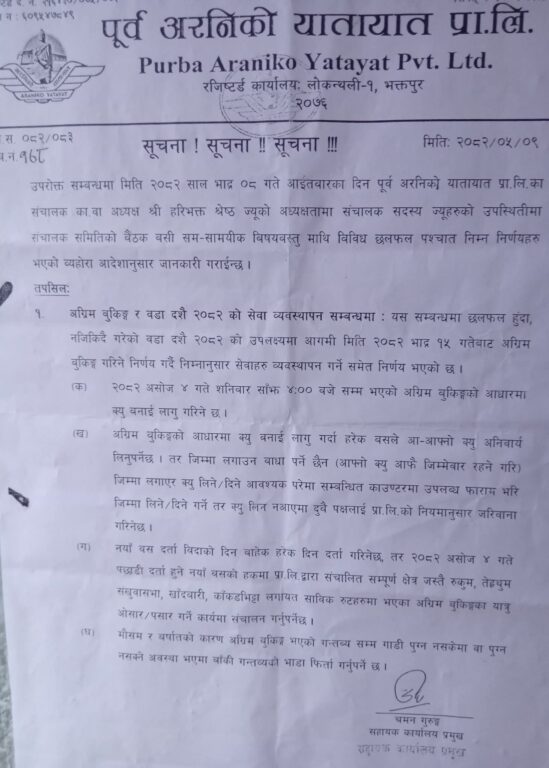 पूर्व अरनिको यातायात प्रा.लि.
Purba Araniko Yatayat Pvt. Ltd.
रजिष्टर्ड कार्यालय: लोकन्थली-१, भक्तपुर
२०७६
ARANIKO YATAYAT
स. ०८२/०८३
सूचना ! सूचना !! सूचना !!!
मिति: २०८२/०५/०९
उपरोक्त सम्बन्धमा मिति २०८२ साल भाद्र ०८ गते आईतवारका दिन पूर्व अरनिको यातायात प्रा.लि.का
संचालक का.वा अध्यक्ष श्री हरिभक्त श्रेष्ठ ज्यूको अध्यक्षतामा संचालक सदस्य ज्यूहरुको उपस्थितीमा
संचालक समितिको बैठक बसी सम-सामयीक बिषयवस्तु माथि विविध छलफल पश्चात निम्न निर्णयहरु
भएको व्यहोरा आदेशानुसार जानकारी गराईन्छ ।
तपसिल:
१. अग्रिम बुकिङ्ग र वडा दशै २०८२ को सेवा व्यवस्थापन सम्बन्धमा : यस सम्बन्धमा छलफल हुंदा,
नजिकिदै गरेको वडा दशै २०८२ को उपलक्ष्यमा आगमी मिति २०८२ भाद्र १५ गतेबाट अग्रिम
बुकिङ्ग गरिने निर्णय गर्दै निम्नानुसार सेवाहरु व्यवस्थापन गर्ने समेत निर्णय भएको छ ।
(क) २०८२ असोज ४ गते शनिवार साँझ ४:०० वजे सम्म भएको अग्रिम बुकिङ्गको आधारमा
क्यु बनाई लागु गरिने छ ।
(ख) अग्रिम बुकिङ्गको आधारमा क्यु बनाई लागु गर्दा हरेक बसले आ-आफ्नो क्यु अनिवार्य
लिनुपर्नेछ । तर जिम्मा लगाउन बाधा पर्ने छैन (आफ्नो क्यु आफै जिम्मेवार रहने गरि)
जिम्मा लगाएर क्यु लिने/दिने आवश्यक परेमा सम्बन्धित काउण्टरमा उपलब्ध फाराम भरि
जिम्मा लिने/दिने गर्ने तर क्यु लिन नआएमा दुवै पक्षलाई प्रा.लि.को नियमानुसार जरिवाना
गरिनेछ ।
(ग) नयाँ बस दर्ता विदाको दिन बाहेक हरेक दिन दर्ता गरिनेछ, तर २०८२ असोज ४ गते
पछाडी दर्ता हुने नयाँ बसको हकमा प्रा.लि.द्वारा संचालित सम्पूर्ण क्षेत्र जस्तै रुकुम, तेह्रथुम
संखुवासभा, खाँदबारी, काँकडभिट्टा लगायत साविक रुटहरुमा भएका अग्रिम बुकिङ्गका यात्रु
ओसार/पसार गर्ने कार्यमा संचालन गर्नुपर्नेछ ।
(घ) मौसम र वर्षातको कारण अग्रिम बुकिङ्ग भएको गन्तव्य सम्म गाडी पुग्न नसकेमा वा पुग्न
नसक्ने अवस्था भएमा बाँकी गन्तव्यको भाडा फिर्ता गर्नुपर्ने छ ।
चमन गुरुङ्ग
सहायक कार्यालय प्रमुख
सहायक कार्यालय प्रमुख